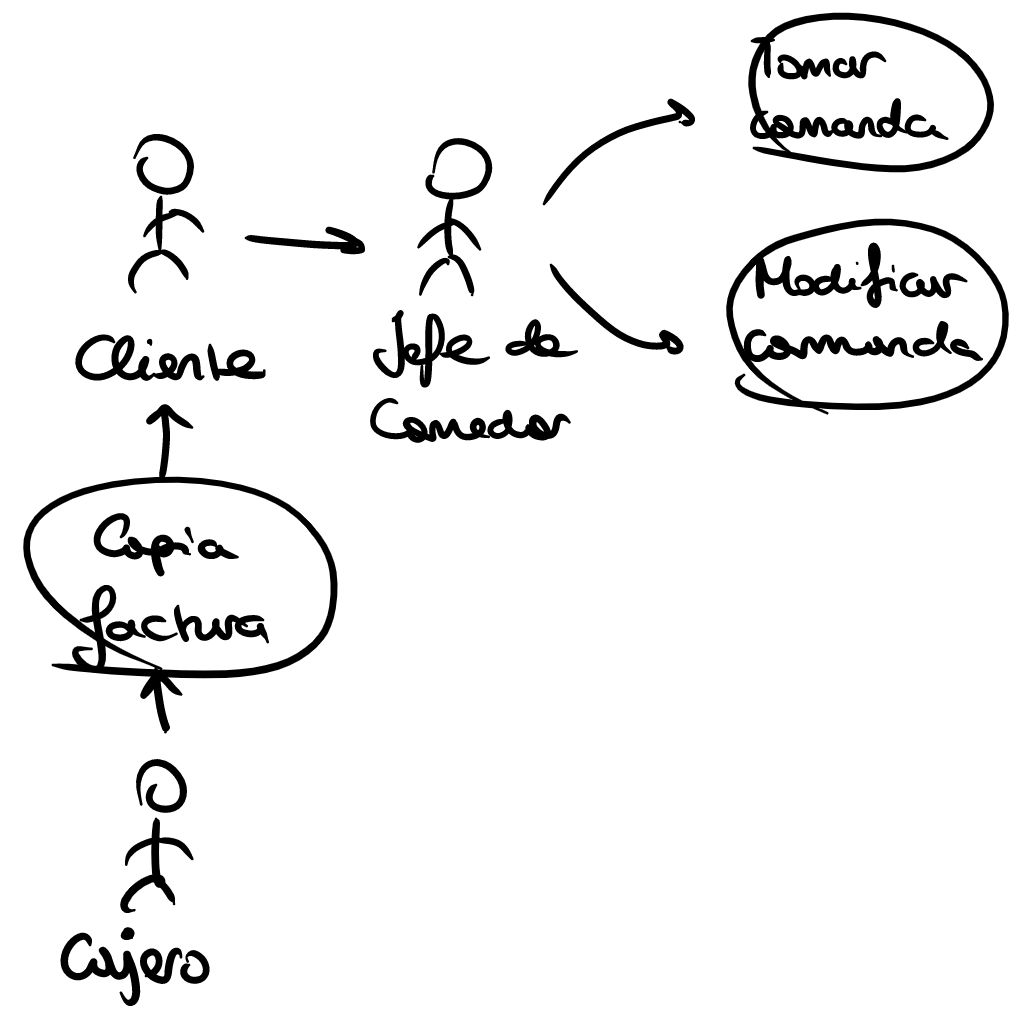 Tomar
comanda
Cliente
Jefe de
Comedor
Modificar
comanda
Copia
factura
Cajero